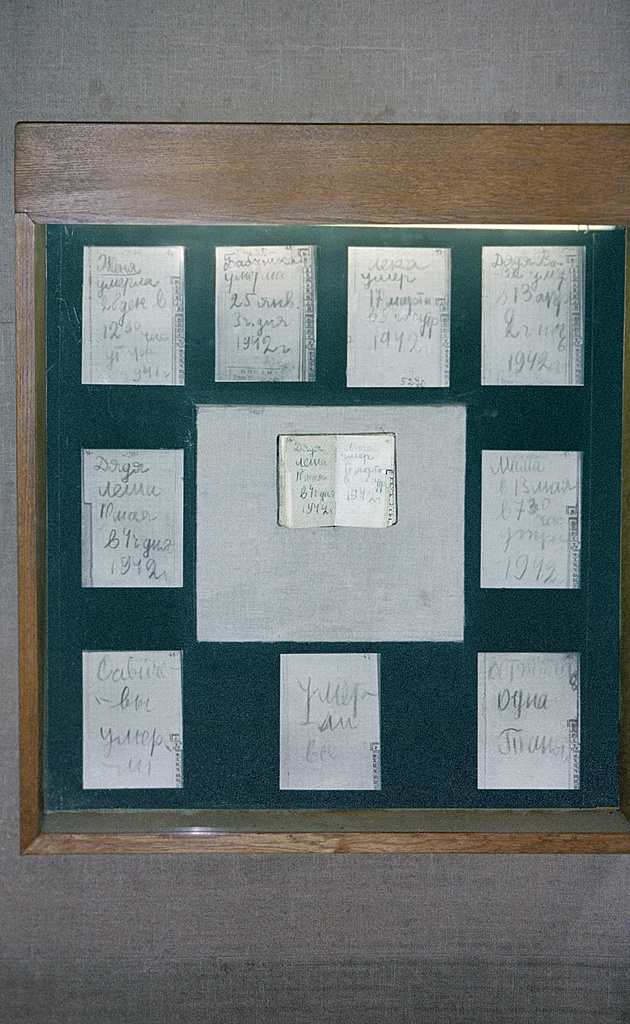 Женя
умерла
28 дек в
12 30 час
утра
1941 г
Бабушка
умерла
25 янв.
3 ч. дня
1942 г
Лека
умер
17 марта
в 5 час утр
1942
Дядя Ва
ся ум
в 13 апр
2 ч ноч
1942 г
Дядя
Леша
10 мая
в 4 ч дня
1942 г
Дядя
Леша
10 мая
в 4 ч дня
1942 г
умер
17 марта
1942
Мама
в 13 мая
в 7 30 час
утра
1942
Савиче-
-вы
умер-
-ли
умер-
ли
все
осталась
одна
Таня